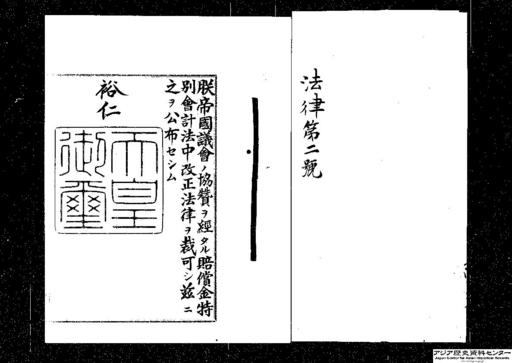 法律第二號
朕帝國議會ノ協賛ヲ經タル賠償金特
別會計法中改正法律ヲ裁可シ茲ニ
之ヲ公布セシム
裕仁
天皇
御璽
アジア歴史資料センター
Japan Center for Asian Historical Records